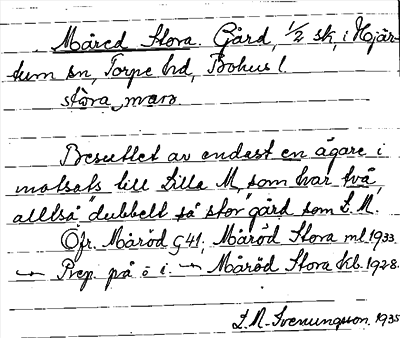 Måred Stora. Gård, 1/2 sk, i Hjär-
tum sn, Torpe hd, Bohus l.
stòra
Besuttet av endast en ägare i
motsats till Lilla M, som har två,
alltså "dubbelt så stor" gård som L. M.
Jfr. Måröd G41; Måröd Stora ml 1933.
Prep. på ö i. Måröd Stora kb. 1928.
L. N. Svenungsson. 1935